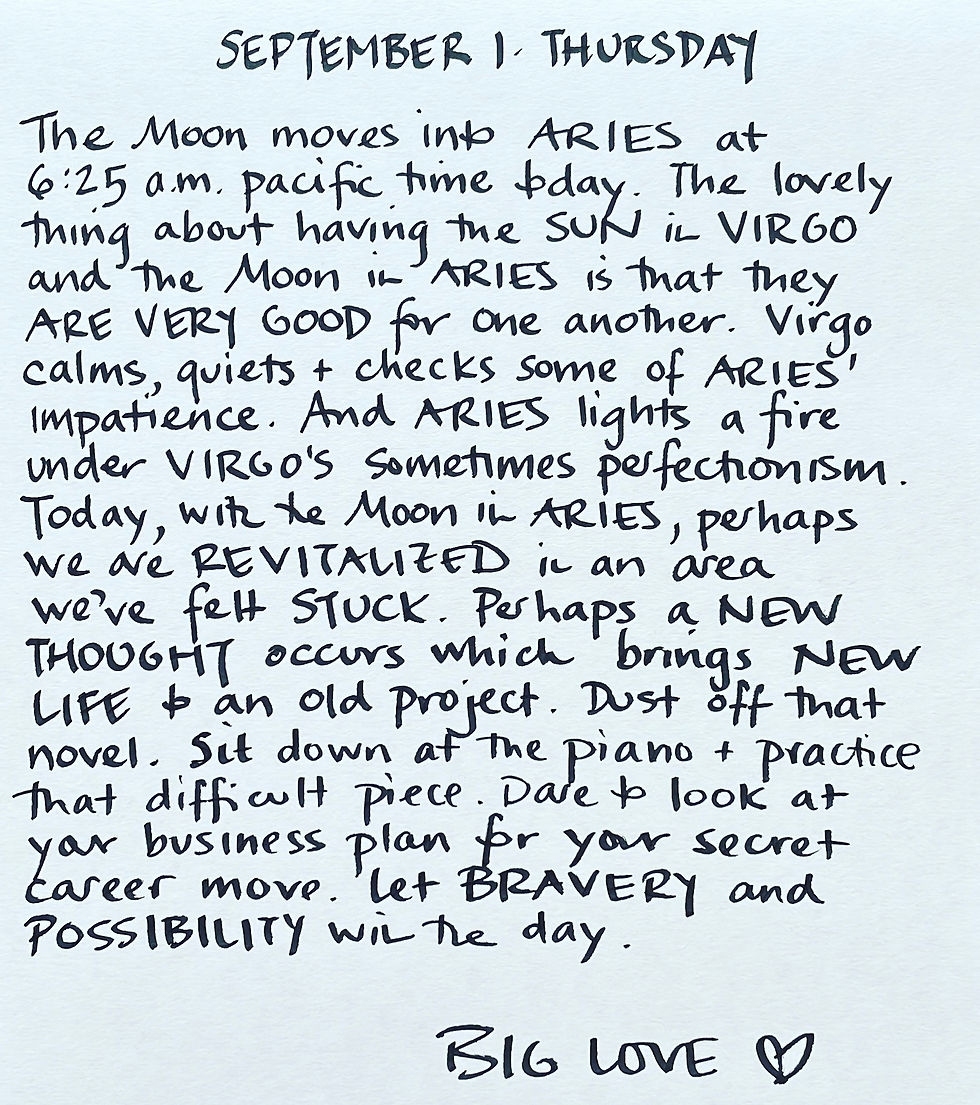 SEPTEMBER 1. THURSDAY
The Moon moves into ARIES at
6:25 a.m. pacific time today. The lovely
thing about having the SUN in VIRGO
and the Moon in ARIES is that they
ARE VERY GOOD for one another. Virgo
calms, quiets + checks some of ARIES'
impatience. And ARIES lights a fire
under VIRGO'S sometimes perfectionism.
Today, with the Moon in ARIES, perhaps
we are REVITALIZED in an area
we've felt STUCK. Perhaps a NEW
THOUGHT occurs which brings NEW
LIFE to an old project. Dust off that
novel. Sit down at the piano + practice
that difficult piece. Dare to look at
your business plan for your secret
career move. Let BRAVERY and
POSSIBILITY win the day.
BIG LOVE ♡